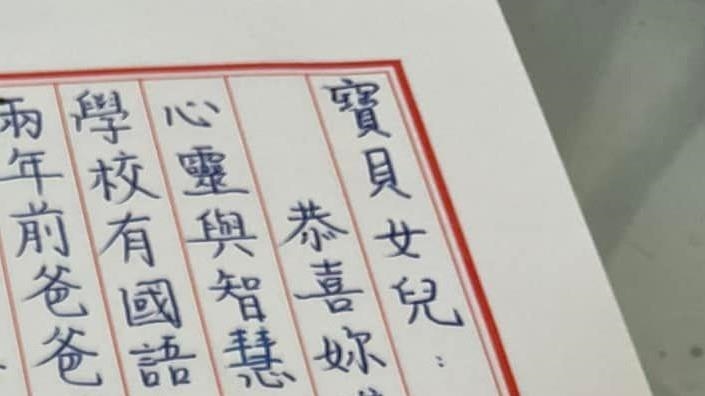 寶貝女兒：
恭喜妳
心靈與智慧
學校有國語
兩年前爸爸